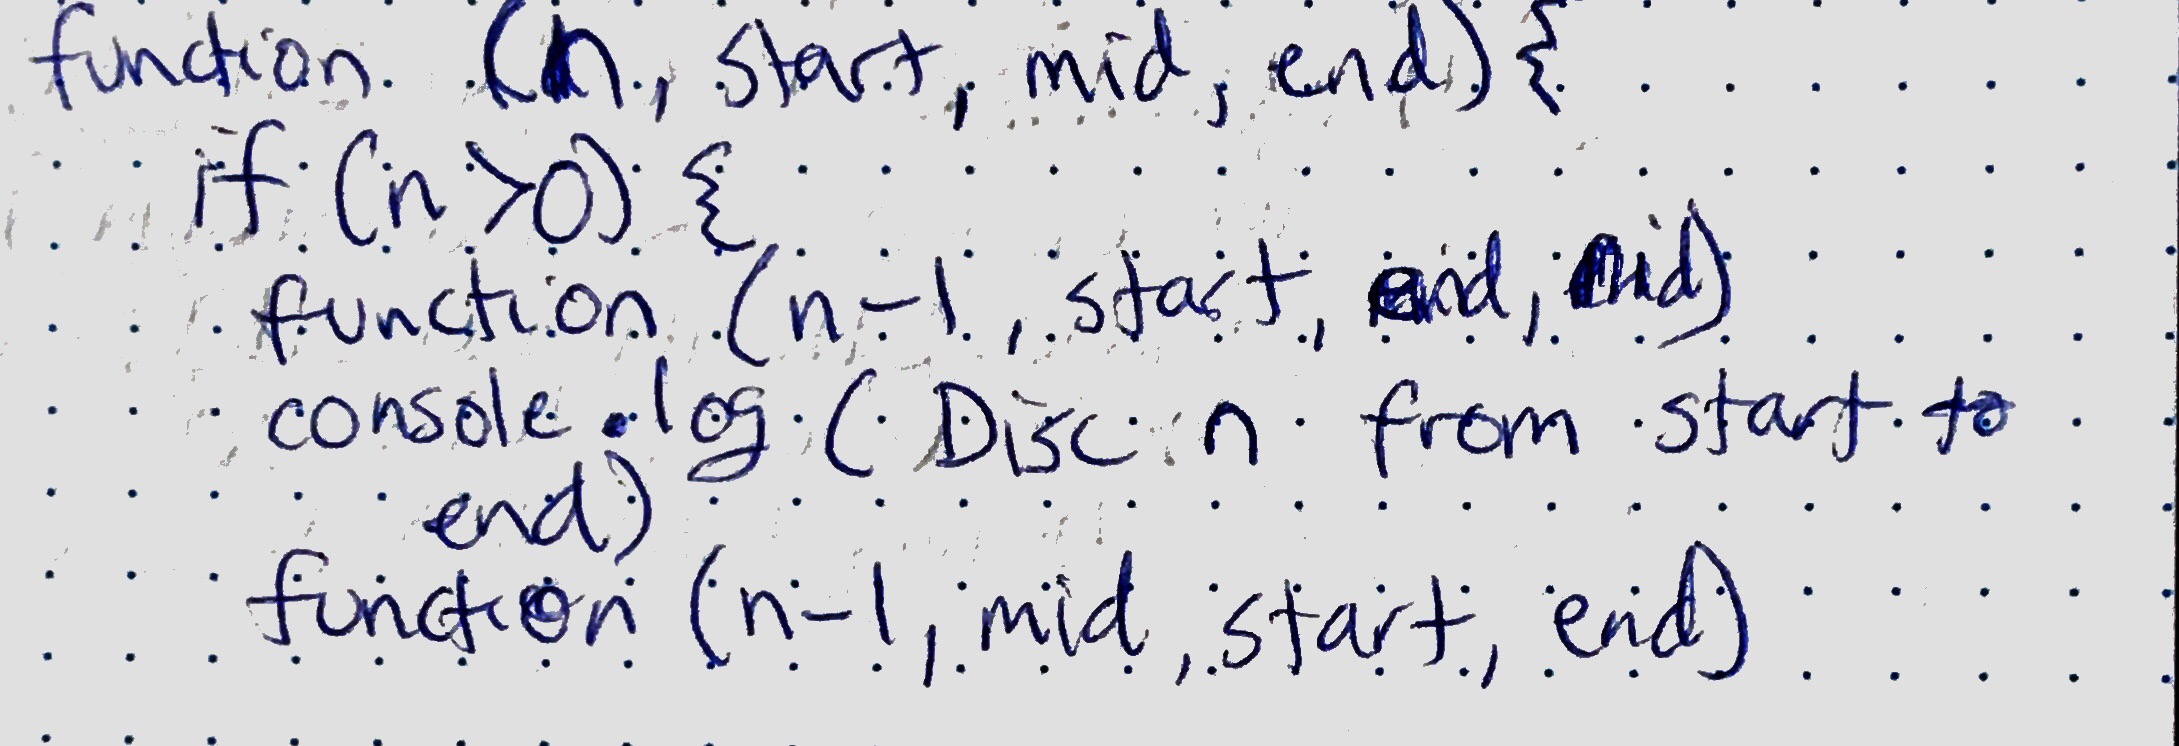 function (n, start, mid, end) {
if (n >0) {
function (n-1, start, end, mid)
console.log (Disc n from start to
end)
function (n-1, mid, start, end)